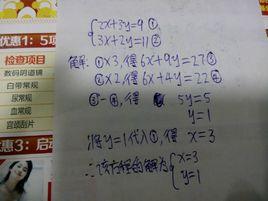 {2x+3y=9 ①
3x+2y=11 ②
解: ①×3, 得 6x+9y=27 ③
②×2, 得 6x+4y=22 ④
③-④, 得 5y=5
y=1
将y=1代入①, 得 x=3
∴该方程的解为{x=3
y=1
优惠1: 5项
检查项目
数码阴道镜
白带常规
尿常规
血常规
宫颈刮片
优惠3: 启动